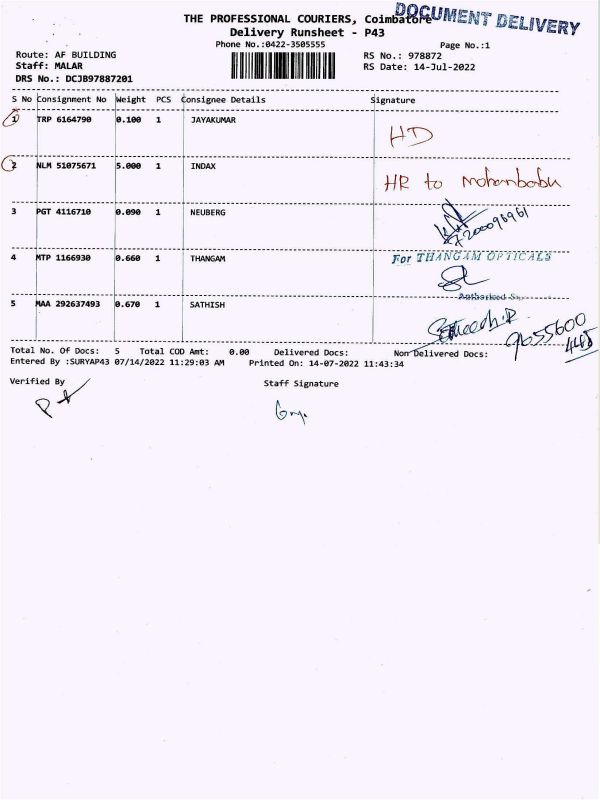 DOCUMENT DELIVERY
THE PROFESSIONAL COURIERS, Coimbatore
Delivery Runsheet - P43
Phone No.:0422-3505555
Page No.:1
Route: AF BUILDING
RS No.: 978872
Staff: MALAR
RS Date: 14-Jul-2022
DRS No.: DCJB97887201
S No Consignment No Weight PCS Consignee Details Signature
1 TRP 6164790 0.100 1 JAYAKUMAR
HD
2 NLM 51075671 5.000 1 INDAX
HR to mohanbabu
3 PGT 4116710 0.090 1 NEUBERG
4 MTP 1166930 0.660 1 THANGAM
For THANGAM OPTICALS
Authorised
5 MAA 292637493 0.670 1 SATHISH
9655600
448
Total No. Of Docs: 5 Total COD Amt: 0.00 Delivered Docs: Non Delivered Docs:
Entered By :SURYAP43 07/14/2022 11:29:03 AM Printed On: 14-07-2022 11:43:34
Verified By Staff Signature